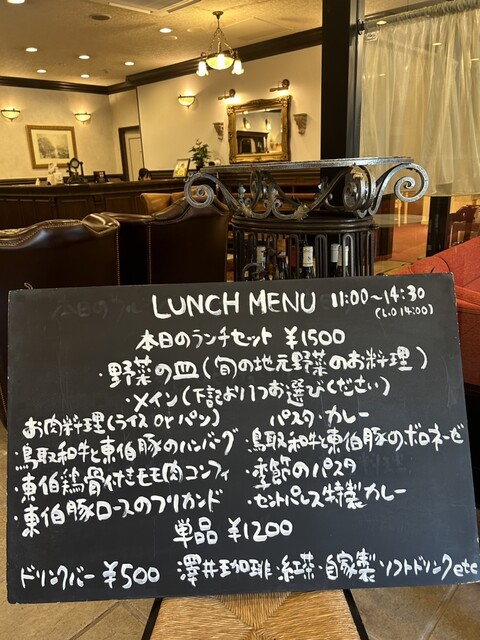 LUNCH MENU 11:00~14:30
(L.O 14:00)
本日のランチセット ¥1500
・野菜の皿(旬の地元野菜のお料理)
・メイン(下記より1つお選びください)
お肉料理(ライス or パン)
・鳥取和牛と東伯豚のハンバーグ
・東伯鶏骨付きモモ肉コンフィ
・東伯豚ロースのブリカンド
パスタ・カレー
・鳥取和牛と東伯豚のボロネーゼ
・季節のパスタ
・セントパレス特製カレー
単品 ¥1200
ドリンクバー ¥500 澤井珈琲・紅茶・自家製ソフトドリンクetc